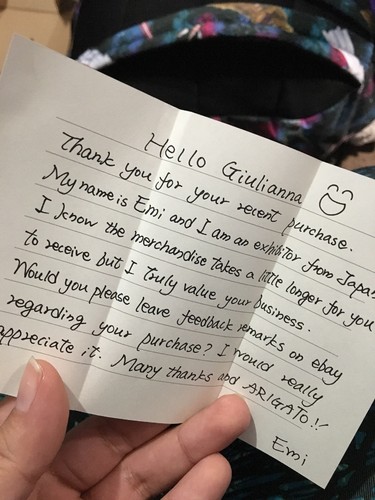 Hello Giulianna
Thank you for your recent purchase.
My name is Emi and I am an exhibitor from Japan
I know the merchandise takes a little longer for you
to receive but I truly value your business.
Would you please leave feedback remarks on ebay
regarding your purchase? I would really
appreciate it. Many thanks and ARIGATO!!
Emi